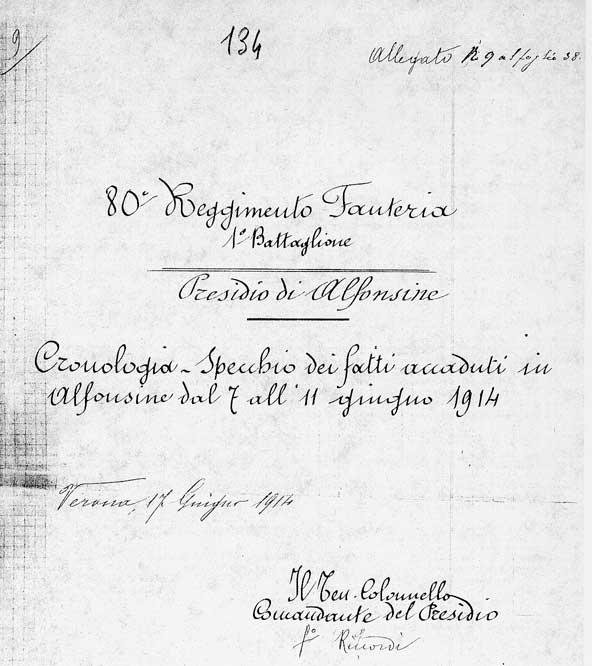 9
134
Allegato N 9 al foglio 38.
80° Reggimento Fanteria
1° Battaglione
Presidio di Alfonsine
Cronologia - Specchio dei fatti accaduti in
Alfonsine dal 7 all' 11 giugno 1914
Verona, 17 Giugno 1914
Il Ten. Colonnello
Comandante del Presidio
f°